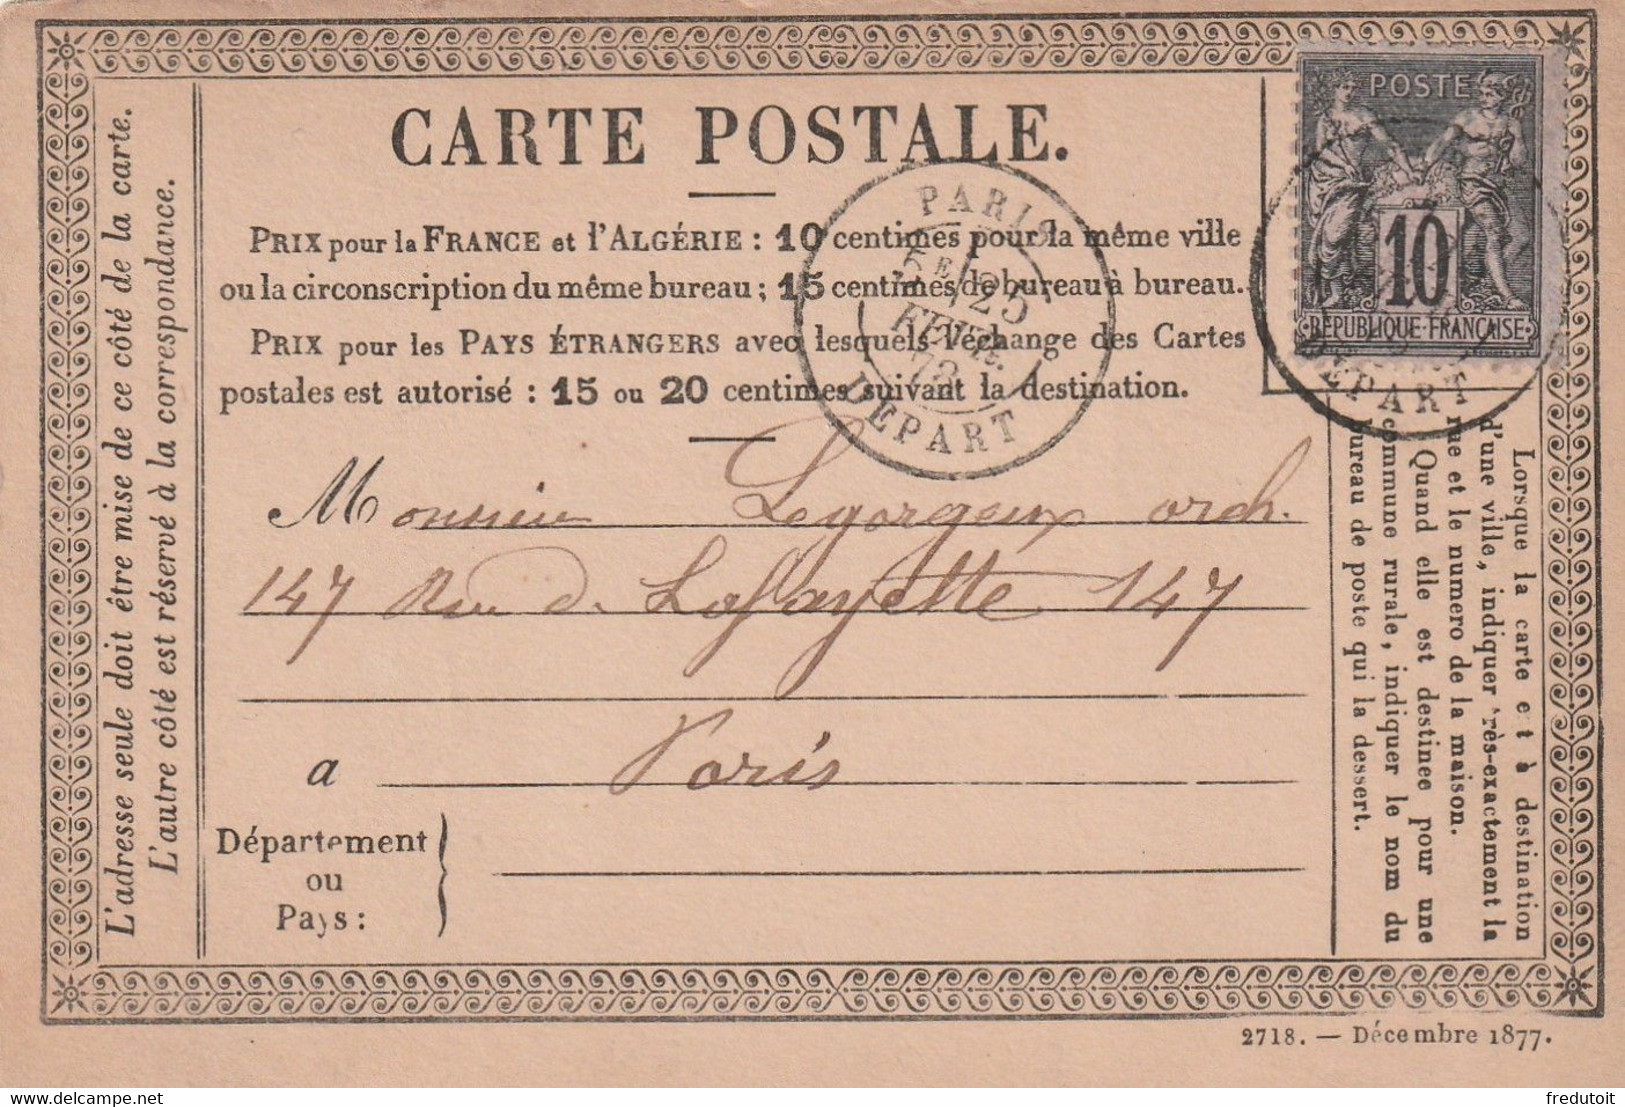 CARTE POSTALE.
PRIX pour la FRANCE et l'ALGÉRIE : 10 centimes pour la même ville
ou la circonscription du même bureau ; 15 centimes de bureau à bureau.
PRIX pour les PAYS ÉTRANGERS avec lesquels l'échange des Cartes
postales est autorisé : 15 ou 20 centimes suivant la destination.
PARIS
5E 25
FEVR.
78
DEPART
POSTE
10
REPUBLIQUE FRANÇAISE
DEPART
Monsieur Legorgeux arch.
147 Rue de Lafayette 147
a Paris
Département
ou
Pays :
L'adresse seule doit être mise de ce côté de la carte.
L'autre côté est réservé à la correspondance.
Lorsque la carte est à destination
d'une ville, indiquer rès-exactement la
rue et le numero de la maison.
Quand elle est destinee pour une
commune rurale, indiquer le nom du
bureau de poste qui la dessert.
2718. — Décembre 1877.
www.delcampe.net
fredutoit